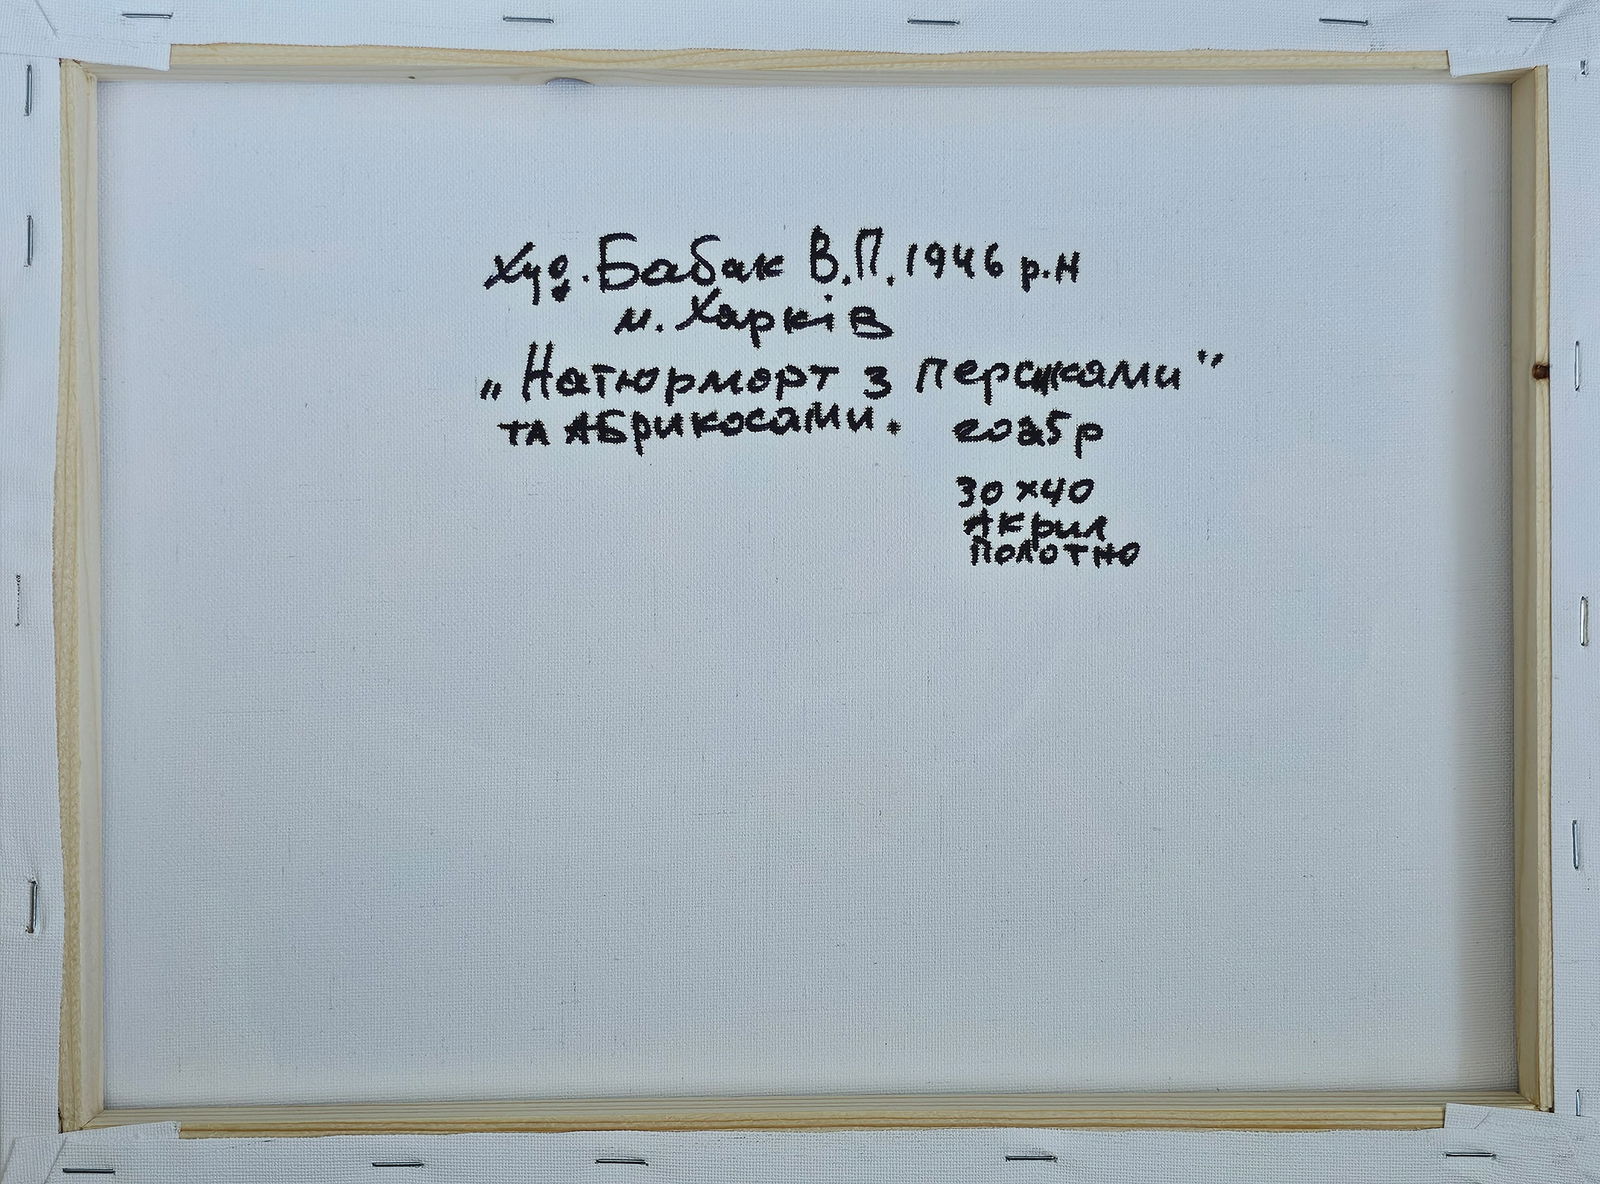 Худ. Бабак В.П. 1946 р.н
м. Харків
„Натюрморт з персиками"
та абрикосами. 2025р
30х40
Акрил
полотно